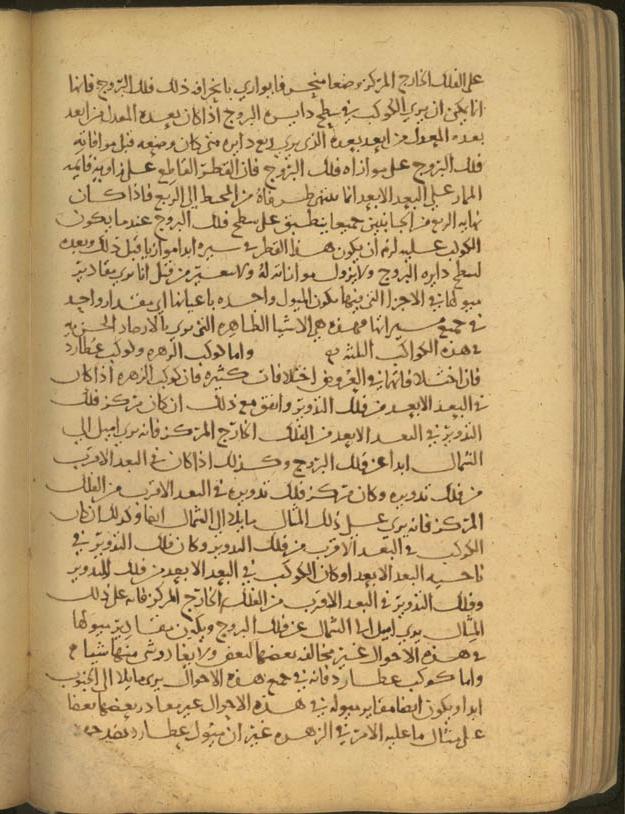 على الفلك الخارج المركز وضعا منحرفا يوازي بانحرافه ذلك فلك البروج فانها
انا يمكن ان يرى الكوكب في سطح دايره البروج اذا كان بعده المعدل من ابعد
بعده المعدل من ابعد بعده الذي يرى ربع دايره متى كان وضعه قبل موافاته
فلك البروج على موازاه فلك البروج فان القطر القاطع على زاويه قايمه
المار على البعد الابعد انما ينتهي طرفاه من المحيط الى الربع فاذا كان
نهايه الربع من الجانبين جميعا ينطبق على سطح فلك البروج عندما يكون
الكوكب عليه لزم ان يكون هذا القطر في مسيره ابدا موازيا قبل ذلك وبعده
لسطح دايره البروج ولا يزول موازاته له ولا يتغير من قبل انا نرى مقادير
ميولها في الاجزا التي فيها يكون الميول واحده باعيانها اي مقدار واحد
في جميع مسيراتها فهذه هي الاشيا الظاهره التي نرى بالارصاد الجزييه
في هذه الكواكب الثلثه واما كوكب الزهره وكوكب عطارد
فان اختلافاتهما في العروض اختلافات كثيره فان كوكب الزهره اذا كان
في البعد الابعد من فلك التدوير واتفق مع ذلك ان كان مركز فلك
التدوير في البعد الابعد من الفلك الخارج المركز فانه يرى اميل الى
الشمال ابدا عن فلك البروج وكذلك اذا كان في البعد الاقرب
من فلك تدويره وكان مركز فلك تدويره في البعد الاقرب من الفلك
المركز فانه يرى على ذلك المثال مايلا الى الشمال ايضا وكذلك ان كان
الكوكب في البعد الاقرب من فلك التدوير وكان فلك التدوير في
ناحيه البعد الابعد او كان الكوكب في البعد الابعد من فلك التدوير
وفلك التدوير في البعد الاقرب من الفلك الخارج المركز فانه على ذلك
المثال يرى اميل الى الشمال عن فلك البروج ويكون مقادير ميولها
في هذه الاحوال غير مخالفه بعضها لبعض ولا يغادر شى منها شيا
واما كوكب عطارد فانه في جميع هذه الاحوال يرى مايلا الى الجنوب
ابدا ويكون ايضا مقادير ميوله في هذه الاحوال غير مغادر بعضها بعضا
على مثال ما عليه الامر في الزهره غير ان ميول عطارد